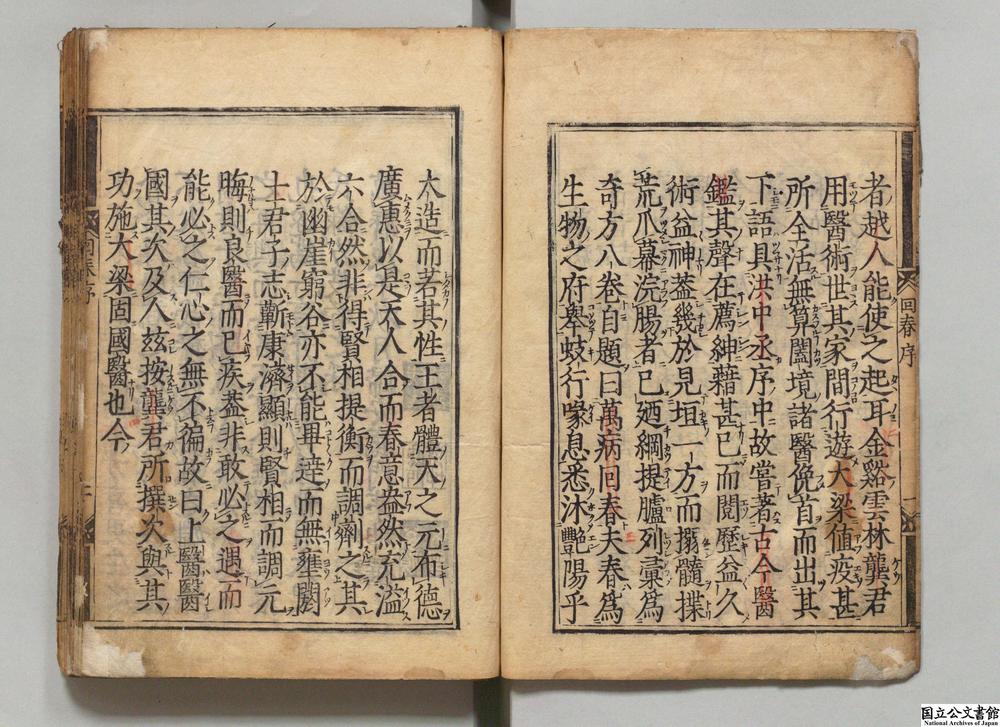 者越人能使之起耳金谿雲林龔君
用醫術世其家間行遊大梁值疫甚
所全活無算闔境諸醫俛首而出其
下語具洪中丞序中故嘗著古今醫
鑑其聲在薦紳藉甚已而閱歷益久
術益神蓋幾於見垣一方而搦髓揲
荒爪幕浣腸者已廼綱提臚列彚為
奇方八卷自題曰萬病回春夫春為
生物之府舉蚑行喙息悉沐艷陽乎
回春序
大造而若其性王者體天之元布德
廣惠以是天人合而春意盎然充溢
六合然非得賢相提衡而調劑之其
於幽崖窮谷亦不能畢達而無雍閼
士君子志蘄康濟顯則賢相而調元
晦則良醫而已疾蓋非敢必之遇而
能必之仁心之無不徧故曰上醫醫
國其次及人茲按龔君所撰次與其
功施大梁固國醫也今
回春序
国立公文書館
National Archives of Japan